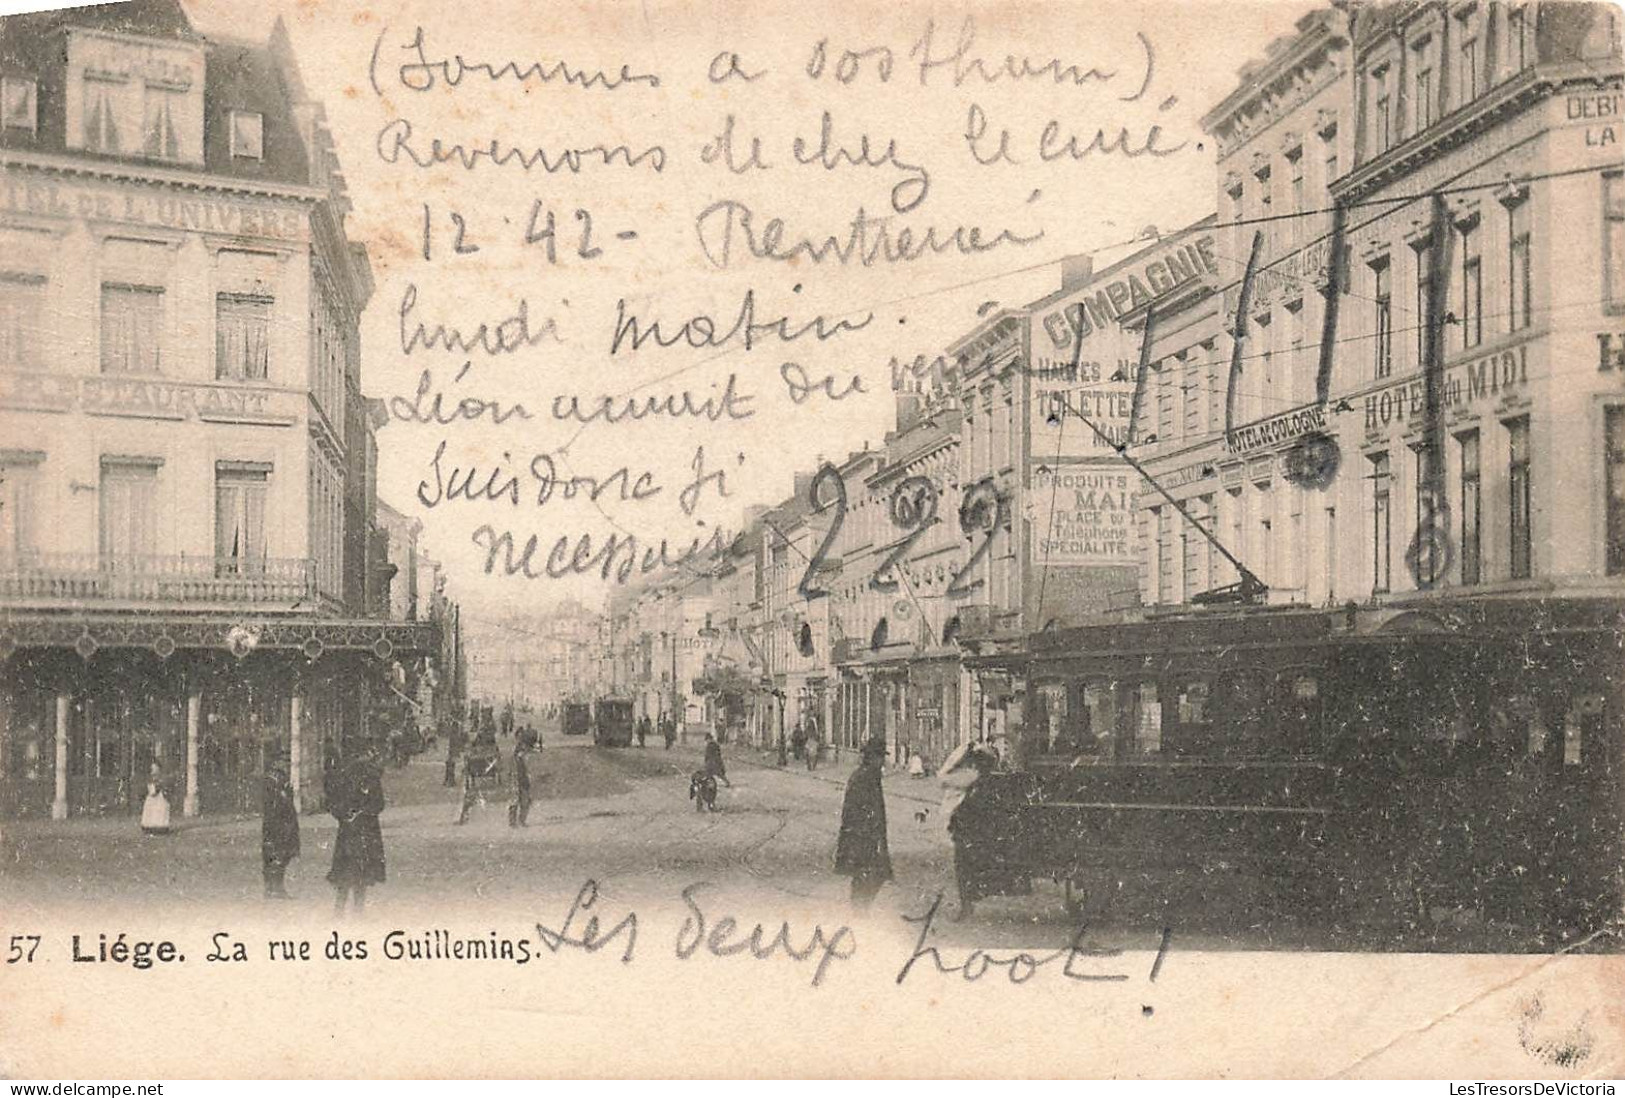 (Sommes a Oosthum)
Revenons de chez le curé.
12.42 - Rentrerai
lundi matin.
Léon aurait du venir
Suis donc si
necessaire
? ? ? ! ! ! ! !
HOTEL DE L'UNIVERS
RESTAURANT
COMPAGNIE
HAUTES NO
TOILETTE
MAI
PRODUITS
MAIS
PLACE DU T
Téléphone
SPÉCIALITÉ
HOTEL DE COLOGNE
HOTEL du MIDI
DEBI
LA
H
57 Liége. La rue des Guillemins.
Les deux
LesTresorsDeVictoria